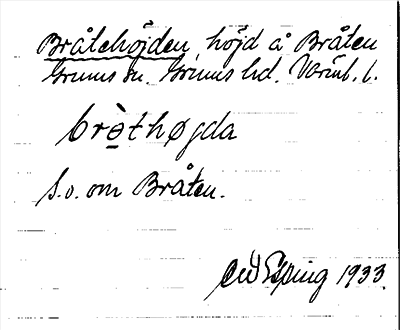 Bråtehöjden, höjd å Bråten
Grums sn. Grums hd. Värml. l.
bròthøgda
S.o. om Bråten.
Espling 1933.